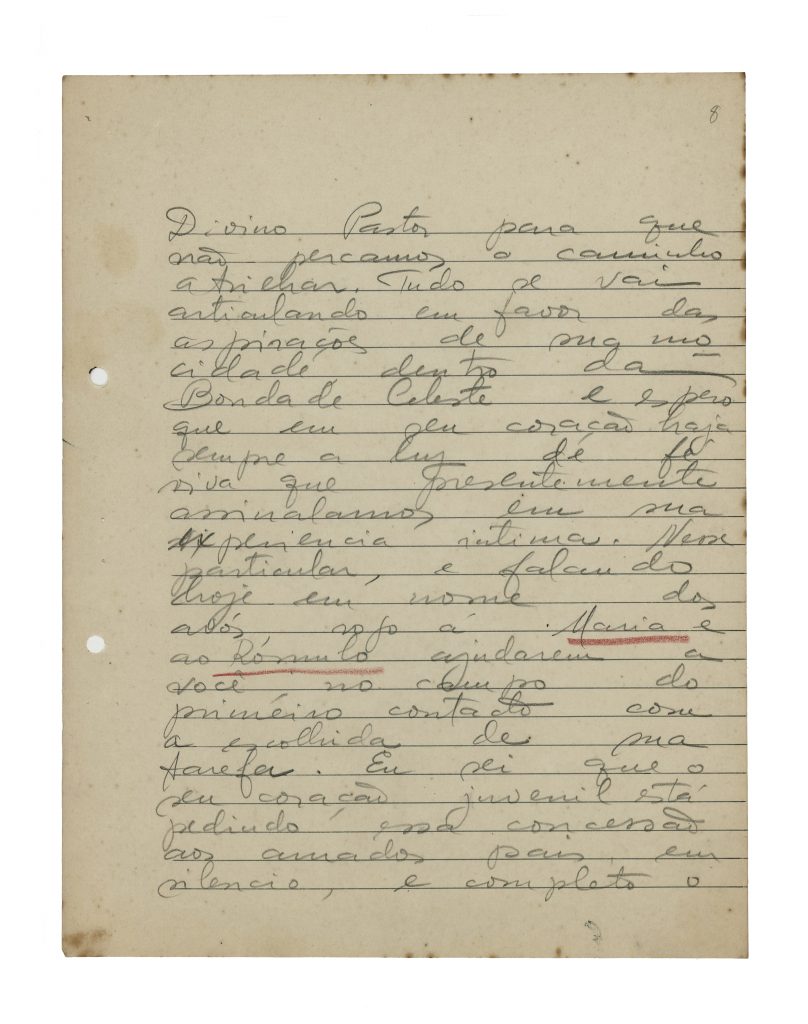 8
Divino Pastor para que
não percamos o caminho
a trilhar. Tudo se vai
articulando em favor das
aspirações de sua mo
cidade, dentro da
Bondade Celeste e espero
que em seu coração haja
sempre a luz de fé
viva que presentemente
assinalamos em sua
experiencia intima. Nesse
particular, e falando
hoje em nome dos
avós rojo á Maria e
ao Rómulo ajudarem a
você no campo do
primeiro contacto com
a escolhida de sua
tarefa. Eu sei que o
seu coração juvenil está
pedindo essa concessão
aos amados pais, em
silencio, e completo o